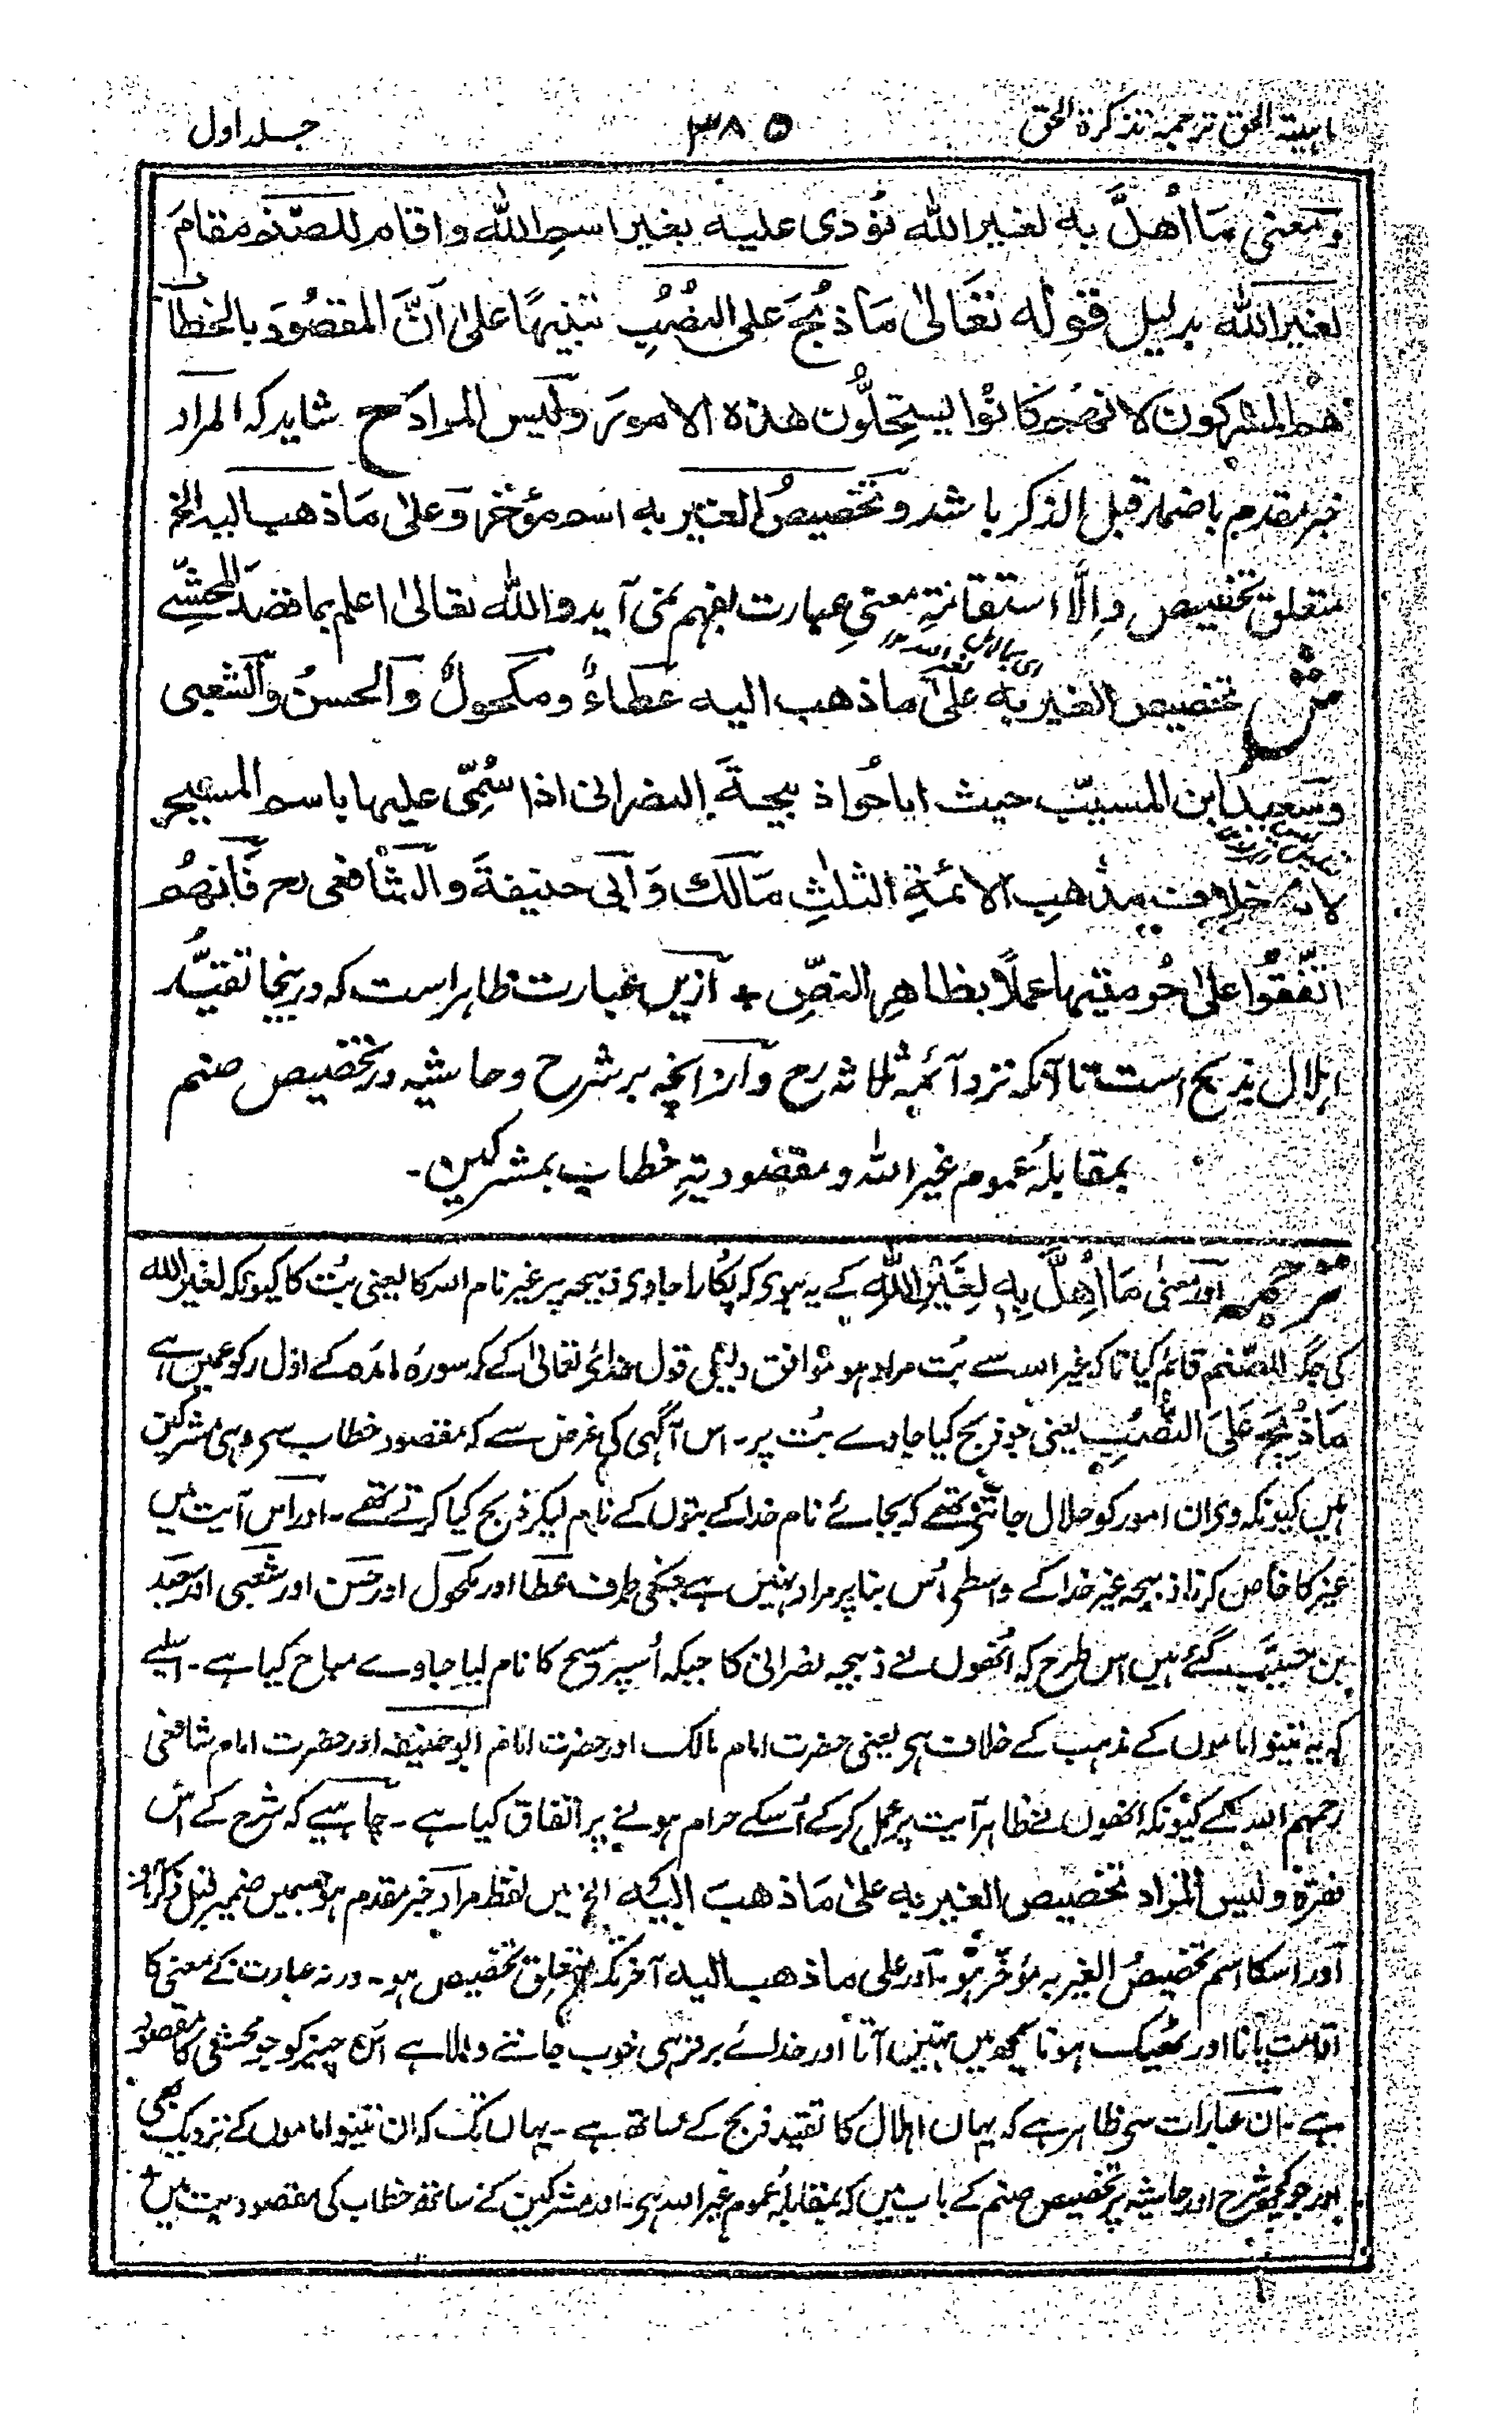 ترجمہ تذکرۃ الحق ۳۸۵ جلد اول
ومعنى مَا اُهِلَّ بِهٖ لغیر الله نُوْدی علیه بغیر اسم الله واقام للصَّنم مقامَ
لغیر الله بدلیل قوله تعَالیٰ مَا ذُبِحَ عَلی النُصُبِ تنبیهًا علیٰ اَنَّ المقصُودَ بالخطاب
هم المشرکون لانهم کانوا یستحِلُّون هٰذه الامورَ ولَیس المراد مح شاید که المراد
خبر مقدم باضمار قبل الذکر باشد وتخصیصُ الغیر به اسم مؤخر وَعلیٰ مَا ذهب الیه الخ
متعلق تخصیص وِالَّا استقامۃِ معنیِ عبارت بفهم نمی آید والله تعالیٰ اعلم بما قصدَ المحشّے
ش تخصیص الغیر به عَلیٰ ما ذهب الیه عَطاءٌ ومکحولٌ وَالحسنُ وَالشعبی
وسَعید ابن المسیّب حیث اباحُوا ذبیحةَ النصرانی اذا سُمِّی علیها باسم المسیح
لانه خلاف مذهبِ الائمۃِ الثلٰثِ مَالک وَابی حنیفةَ والشافعی رح فَانهُم
اتَّفقُوا علیٰ حُرمتِها عملًا بظاهرِ النصِّ + ازیں عبارت ظاهر است که درینجا تقیُّد
اہلال بذبح است تا آنکہ نزد آئمہ ثلاثہ رح وآنچہ بر شرح وحاشیہ در تخصیص صنم
بمقابلہ عموم غیر الله ومقصودیتِ خطاب بمشرکین۔
ترجمہ اور معنی مَا اُهِلَّ بِهٖ لِغَیْرِ اللهِ کے یہ ہوی کہ پُکارا جاوی ذبیحہ پر غیر نام اللہ کا یعنی بُت کا کیونکہ لغیر الله
کی جگہ للصّنم قائم کیا تاکہ غیر اللہ سے بُت مراد ہو موافق دلیل قول خدائے تعالیٰ کے کہ سورہ مائدہ کے اوّل رکوع میں ہے
مَا ذُبِحَ عَلَی النُّصُبِ یعنی جو ذبح کیا جاوے بُت پر۔ اس آگہی کی غرض سے کہ مقصود خطاب سے وہی مشرکین
ہیں کیونکہ وی ان امور کو حلال جانتے تھے کہ بجائے نام خدا کے بتوں کے نام لیکر ذبح کیا کرتے تھے۔ اور اس آیت میں
غیر کا خاص کرنا ذبیحہ غیر خدا کے واسطے اُس بنا پر مراد نہیں ہے جسکی طرف عَطا اور مکحُول اور حَسَن اور شَعبی اور سَعِید
بن مُسَیَّب گئے ہیں اس طرح کہ اُنھوں نے ذبیحہ نصرانی کا جبکہ اُسپر مسیح کا نام لیا جاوے مباح کیا ہے۔ اسلیے
کہ یہ تینو اماموں کے مذہب کے خلاف ہی یعنی حضرت امام مالک اور حضرت امام ابو حنیفہ اور حضرت امام شافعی
رحمہم اللہ کے کیونکہ انھوں نے ظاہر آیت پر عمل کرکے اُسکے حرام ہونے پر اتفاق کیا ہے۔ چاہیے کہ شرح کے اس
فقرہ ولیس المُراد تخصیص الغیر به علیٰ مَا ذهبَ الیه الخ میں لفظ مراد خبر مقدم ہو جسمیں ضمیر قبل ذکر
اور اسکا اسم تخصیصُ الغیر به مؤخّر ہُو۔ اور علی ما ذهب الیه آخر تک متعلق تخصیص ہو۔ ورنہ عبارت کے معنی کا
اقامت پانا اور ٹھیک ہونا سمجھ میں نہیں آتا اور خدائے برتر ہی خوب جاننے والا ہے اس چیز کو جو محشی کا مقصود
ہے۔ ان عبارات سے ظاہر ہے کہ یہاں اہلال کا تقید ذبح کے ساتھ ہے۔ یہاں تک کہ ان تینو اماموں کے نزدیک بھی
اور جو کچھ شرح اور حاشیہ پر تخصیص صنم کے باب میں کہ بمقابلہ عموم غیر اللہ ہی۔ اور مشرکین کے ساتھ خطاب کی مقصودیت میں +